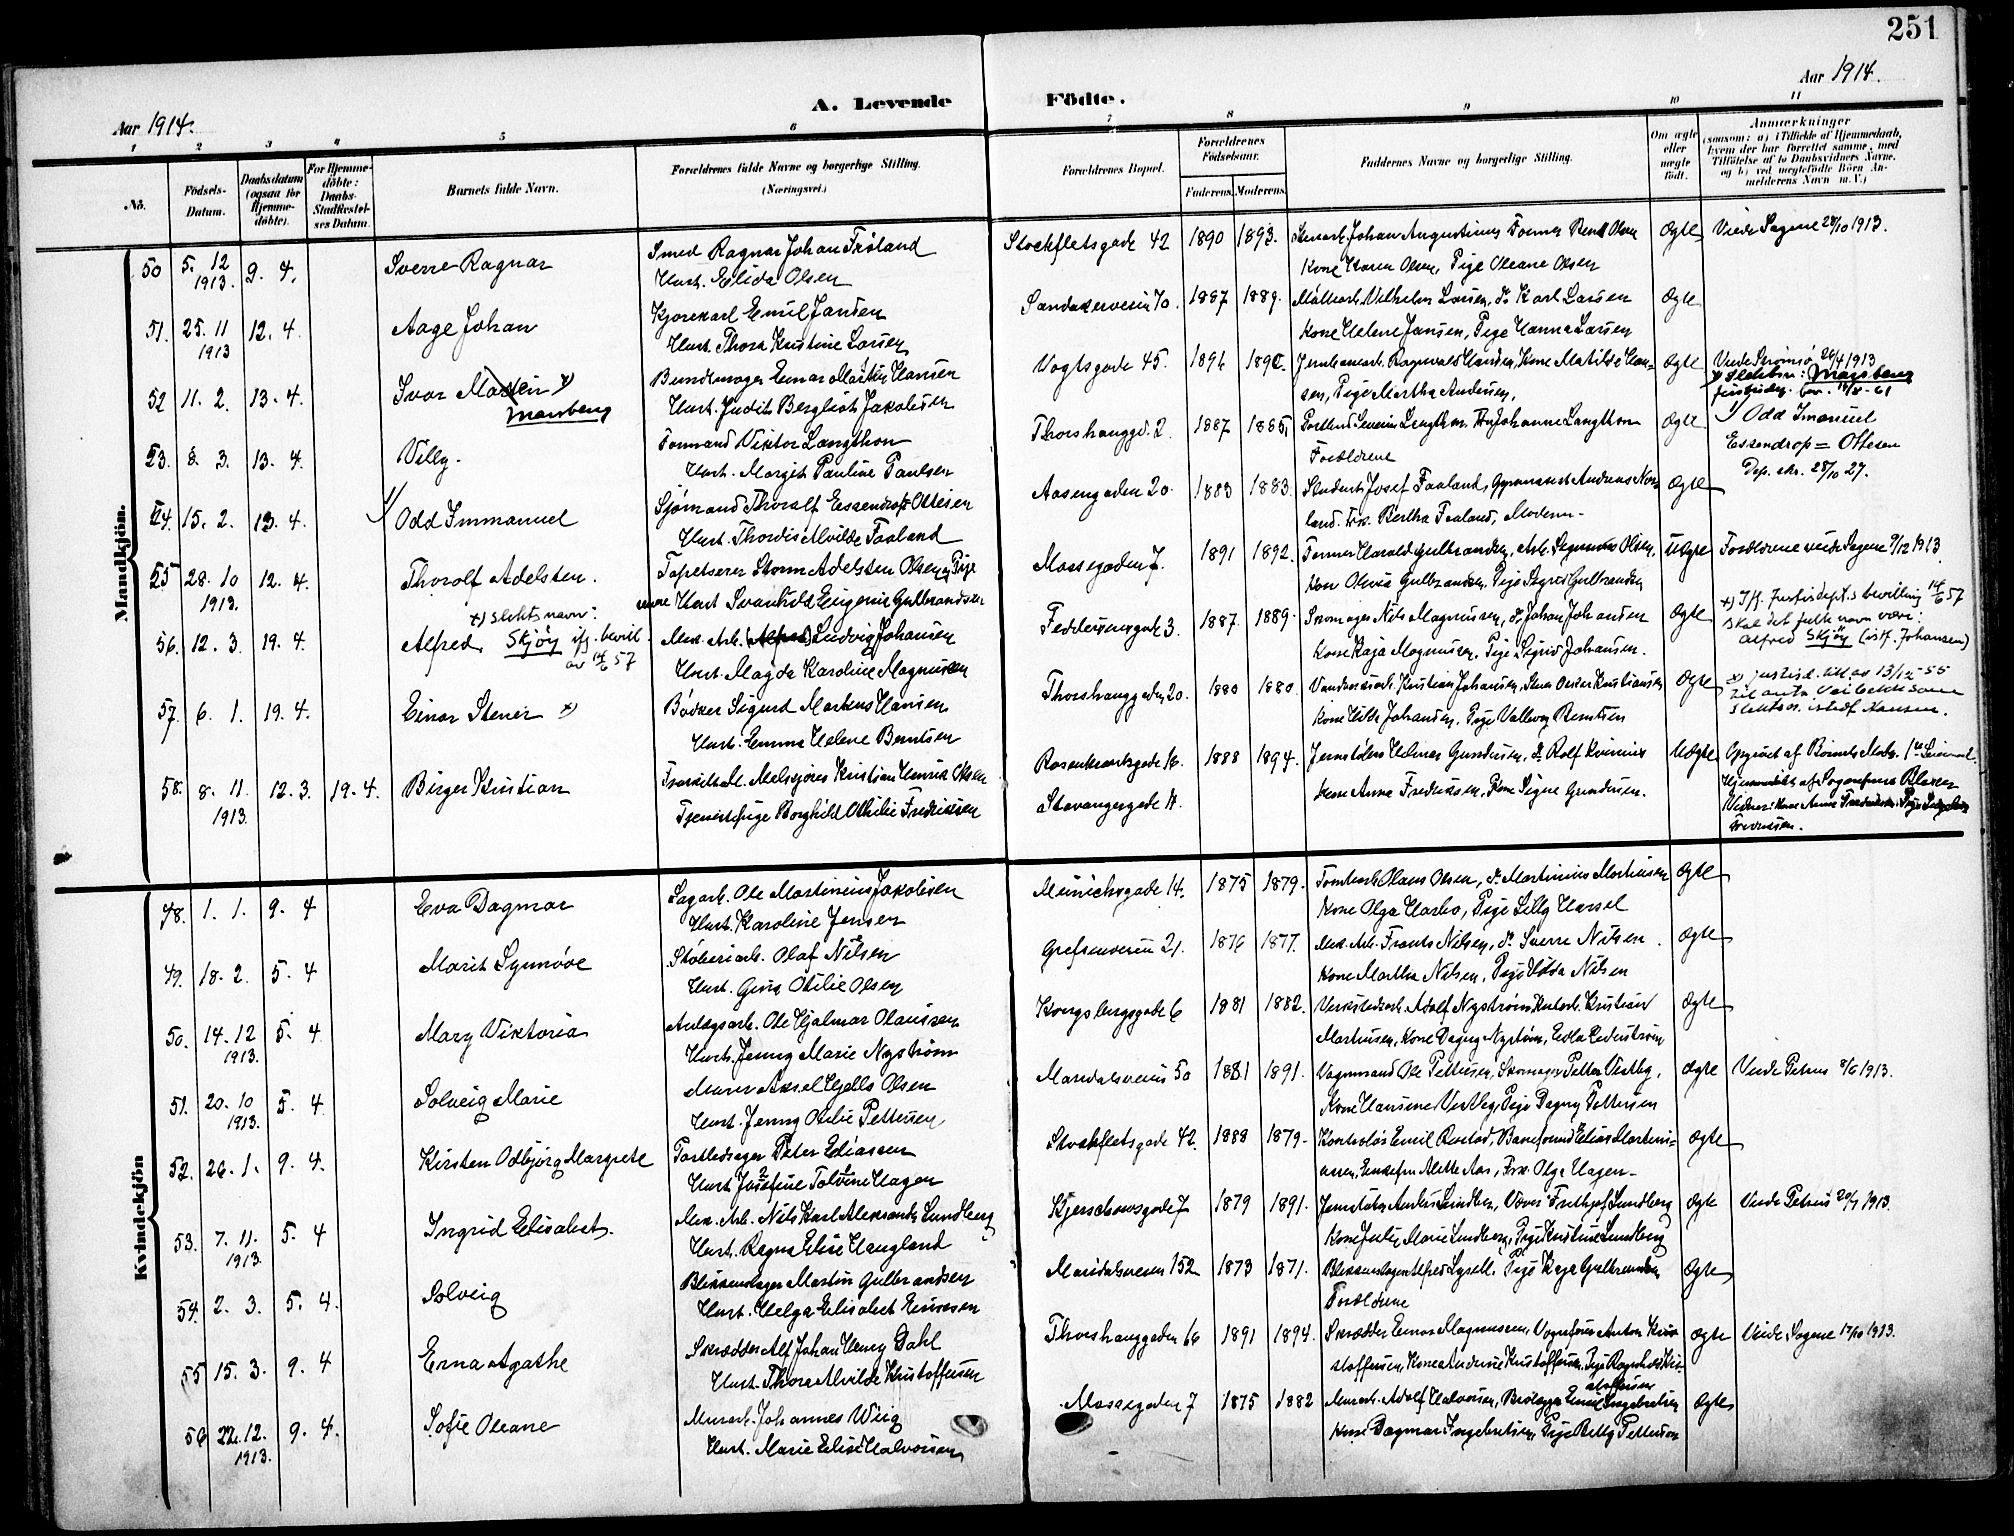 251
Aar 1914.
A. Levende Födte.
Aar 1914.
1 2 3 4 5 6 7 8 9 10 11
No.
Födsels-Datum.
Daabsdatum (ogsaa for Hjemme-döbte).
For Hjemme-döbte: Daabs-Stadfæstel-ses Datum.
Barnets fulde Navn.
Forældrenes fulde Navne og borgerlige Stilling. (Næringsvei.)
Forældrenes Bopæl.
Forældrenes Födselsaar.
Faderens. Moderens.
Faddernes Navne og borgerlige Stilling.
Om ægte eller uægte födt.
Anmærkninger
(saasom: a) i Tilfælde af Hjemmedaab, hvem der har forrettet samme, med Tilföielse af to Daabsvidners Navne, og b) ved uægtefödte Börn An-melderens Navn m. V.)
Mandkjön.
50 5. 12 1913. 9. 4. Sverre Ragnar Smed Ragnar Johan Frøland Stockfletsgade 42 1890 1893. Johan Augustinus Bernt Olsen Ægte Viede Sagene 28/10 1913.
Hust. Elida Olsen Kone Karen Olsen, Pige Oleane Olsen
51. 25. 11 1913 12. 4. Aage Johan Kjørekarl Emil Jansen Sandakerveien 70. 1887 1889. Vilhelm Larsen, do Karl Larsen Ægte
Hust. Thora Kristine Larsen Kone Helene Jansen, Pige Hanna Larsen
52 11. 2. 13. 4. Ivar Martin x) Mansberg Bundtmager Einar Martin Hansen Vogtsgade 45. Ragnvald Hansen, Kone Matilde Han- Ægte Viede 26/4 1913
Hust. Judith Bergliot Jakobsen sen, Pige Martha Andersen, x) Slektsn: Mansberg
53. 8. 3. 13. 4. Villy. Formand Viktor Langthon Thorshauggd. 2. 1887 1885, Severin Langthon, Johanne Langthon Ægte
Hust. Margit Pauline Paulsen Forældrene
54. 15. 2. 13. 4. 1/ Odd Immanuel Sjømand Thoralf Essendrop Ottesen Aasengaden 20. 1883 1883. Student Josef Faaland, Gymnasiast Andreas Ægte 1/ Odd Imanuel Essendrop = Ottesen
Hust. Thordis Alvilde Faaland land. Frk. Bertha Faaland, Moderen- Dep. skr. 28/10 27.
55 28. 10 1913. 12. 4. Thorolf Adelsten. Tapetserer Storm Adelsten Olsen og Pige Mossegaden 7. 1891 1892. Former Harald Gulbrandsen, Arb. Olsen, Uægte Forældrene viede Sagene 9/12 1913
senere Hust Svanhild Eugenie Gulbrandsen Kone Olivia Gulbrandsen, Pige Sigrid Gulbrandsen
56. 12. 3. 19. 4. Alfred x) Slektsnavn: Skjöy ifg. bevill. av 14/6 57 Mek. Arb. (Alfred) Ludvig Johansen Feddersensgade 3. 1887. 1889. Skomager Nils Magnussen, do Johan Johansen Ægte x) Ifg. Justisdept.s bevilling 14/6 57
Hust. Magda Karoline Magnussen Kone Kaja Magnussen, Pige Sigrid Johansen. skal det fulle navn være: Alfred Skjöy (istf. Johansen)
57. 6. 1. 19. 4. Einar Stener x) Bødker Sigurd Markus Hansen Thorshauggaden 20. 1880 1880. Kristian Johansen, Oscar Kristiansen Ægte x) justisd. till av 13/12-55
Hust. Emma Helene Berntsen Kone Hilda Johansen, Pige Valborg Berntsen slektsn. istedf Hansen.
58. 8. 11. 1913. 12. 3. 19. 4. Birger Kristian Kristian Henrik Olsen Rosenkrantzgade 16. 1888 1894. Helmer Gundersen, do Rolf Uægte Opgivet af Barnets Moder.
Tjenestepige Borghild Othilie Fredriksen Stavangergade 11. Kone Anna Fredriksen, Kone Signe Gundersen.
Fredriksen.
Kvindekjön
48. 1. 1. 9. 4 Eva Dagmar Sagarb. Ole Martinius Jakobsen Meinichsgade 14. 1875 1879. Olaus Olsen, do Martinius Martinsen Ægte
Hust. Karoline Jensen Kone Olga Harbo, Pige Lilly Hassel
49. 18. 2. 5. 4 Marit Synnøve Støberiarb. Olaf Nilsen Grefsenveien 21. 1876 1877. Mek. Arb. Frants Nilsen, do Sverre Nilsen. Ægte
Hust. Gina Otilie Olsen Kone Martha Nilsen, Pige Hilda Nilsen
50. 14. 12 1913. 5. 4 Mary Viktoria Anlægsarb. Ole Hjalmar Olaussen Kongsbergsgade 6 1881 1882. Verkstedsarb. Adolf Nystrøm Kristian Ægte
Hust. Jenny Marie Nystrøm Martinsen, Kone Dagny Nystrøm,
51. 20. 10 1913. 5. 4. Solveig Marie Murer Aksel Kjells Olsen Maridalsveien 50 1881 1891. Vognmand Ole Pettersen, Skomager Petter Vestby, Ægte Viede Petrus 8/6 1913.
Hust. Jenny Otilie Pettersen Kone Hansine Vestby, Pige Dagny Pettersen
52. 26. 1. 9. 4. Kirsten Odbjörg Margrete Postbedsager Peter Eliassen Stockfletsgade 42. 1888 1879. Kontrolør Emil Rustad, Elias Martini- Ægte
Hust Josefine Tolvine Hagen assen, Alette Aas, Frk. Olga Hagen-
53. 7. 11. 1913. 5. 4 Ingrid Elisabet. Mek. Arb. Nils Karl Aleksander Lundberg Kjerschowsgade 7 1879 1891. Anders Lundberg, Væver Frithjof Lundberg Ægte Viede Petrus 20/7 1913.
Hust. Ragna Elise Haugland Kone Julie Marie Lundberg, Pige Kristine Lundberg
54. 2. 3. 5. 4. Solveig Blikkenslager Martin Gulbrandsen Maridalsveien 152 1873 1871. Blikkenslager Alfred Lysell. Pige Kaja Gulbrandsen Ægte
Hust. Helga Elisabet Eriksen Forældrene
55 15. 3. 9. 4 Erna Agathe Skrædder Alf Johan Henry Dahl Thorshauggaden 16 1891 1894. Skrædder Einar Magnussen, Vognfører Anton Kris- Ægte Viede Sagene 17/10 1913.
Hust. Thora Alvilde Kristoffersen stoffersen, Kone Andrine Kristoffersen, Pige Ragnhild Kri-
stoffersen
56 22. 12. 1913. 9. 4. Sofie Oleane Murarb. Johannes Wiig Mossegaden 7 1875 1882 Murarb. Adolf Halvorsen, Emil Ingebretsen Ægte
Hust. Marie Elise Halvorsen Kone Dagmar Ingebretsen, Pige Betty Pettersen